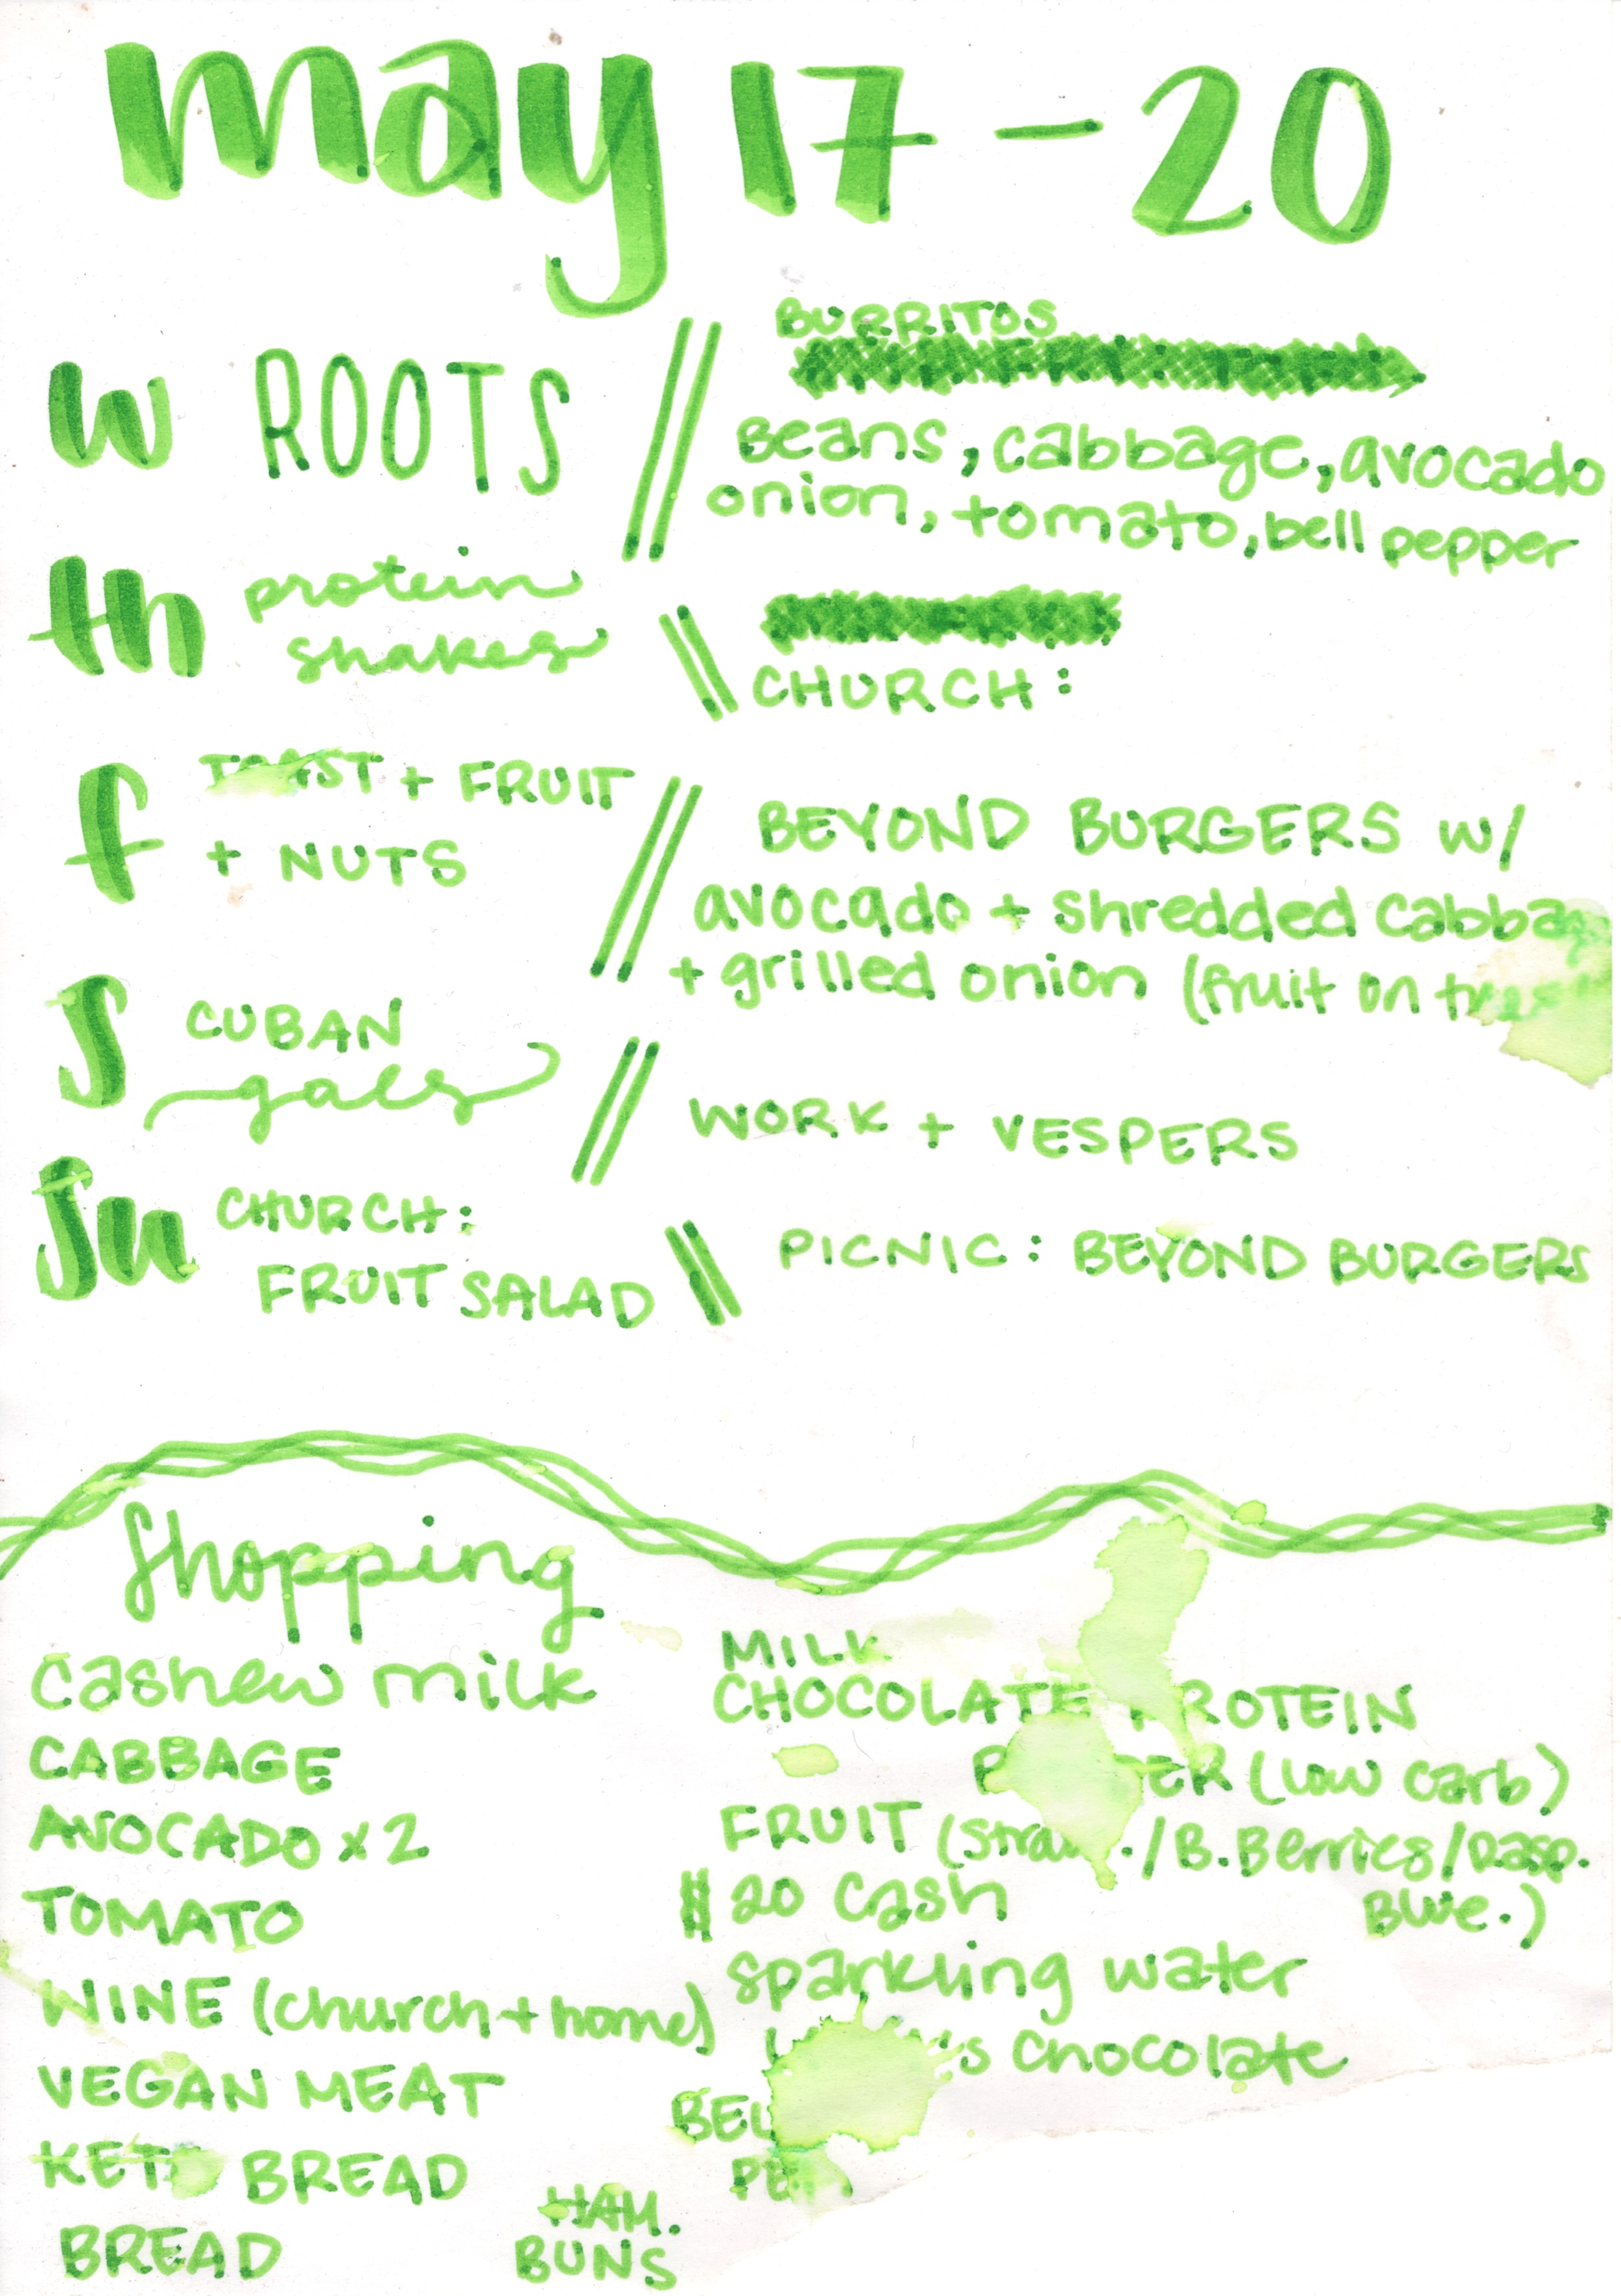 may 17 - 20
w ROOTS // BURRITOS
Beans, cabbage, avocado
onion, tomato, bell pepper
th protein
shakes \\ CHURCH:
f TOAST + FRUIT
+ NUTS // BEYOND BURGERS w/
avocado + shredded cabba
+ grilled onion (fruit on
S CUBAN
gals // WORK + VESPERS
Su CHURCH:
FRUIT SALAD \\ PICNIC: BEYOND BURGERS
Shopping
cashew milk
CABBAGE
AVOCADO x 2
TOMATO
WINE (church + home)
VEGAN MEAT
KETO BREAD
BREAD
HAM.
BUNS
MILK
CHOCOLATE PROTEIN
(low carb)
FRUIT (straw./B.Berries/Rasp.
Blue.)
$20 cash
sparkling water
chocolate
BELL